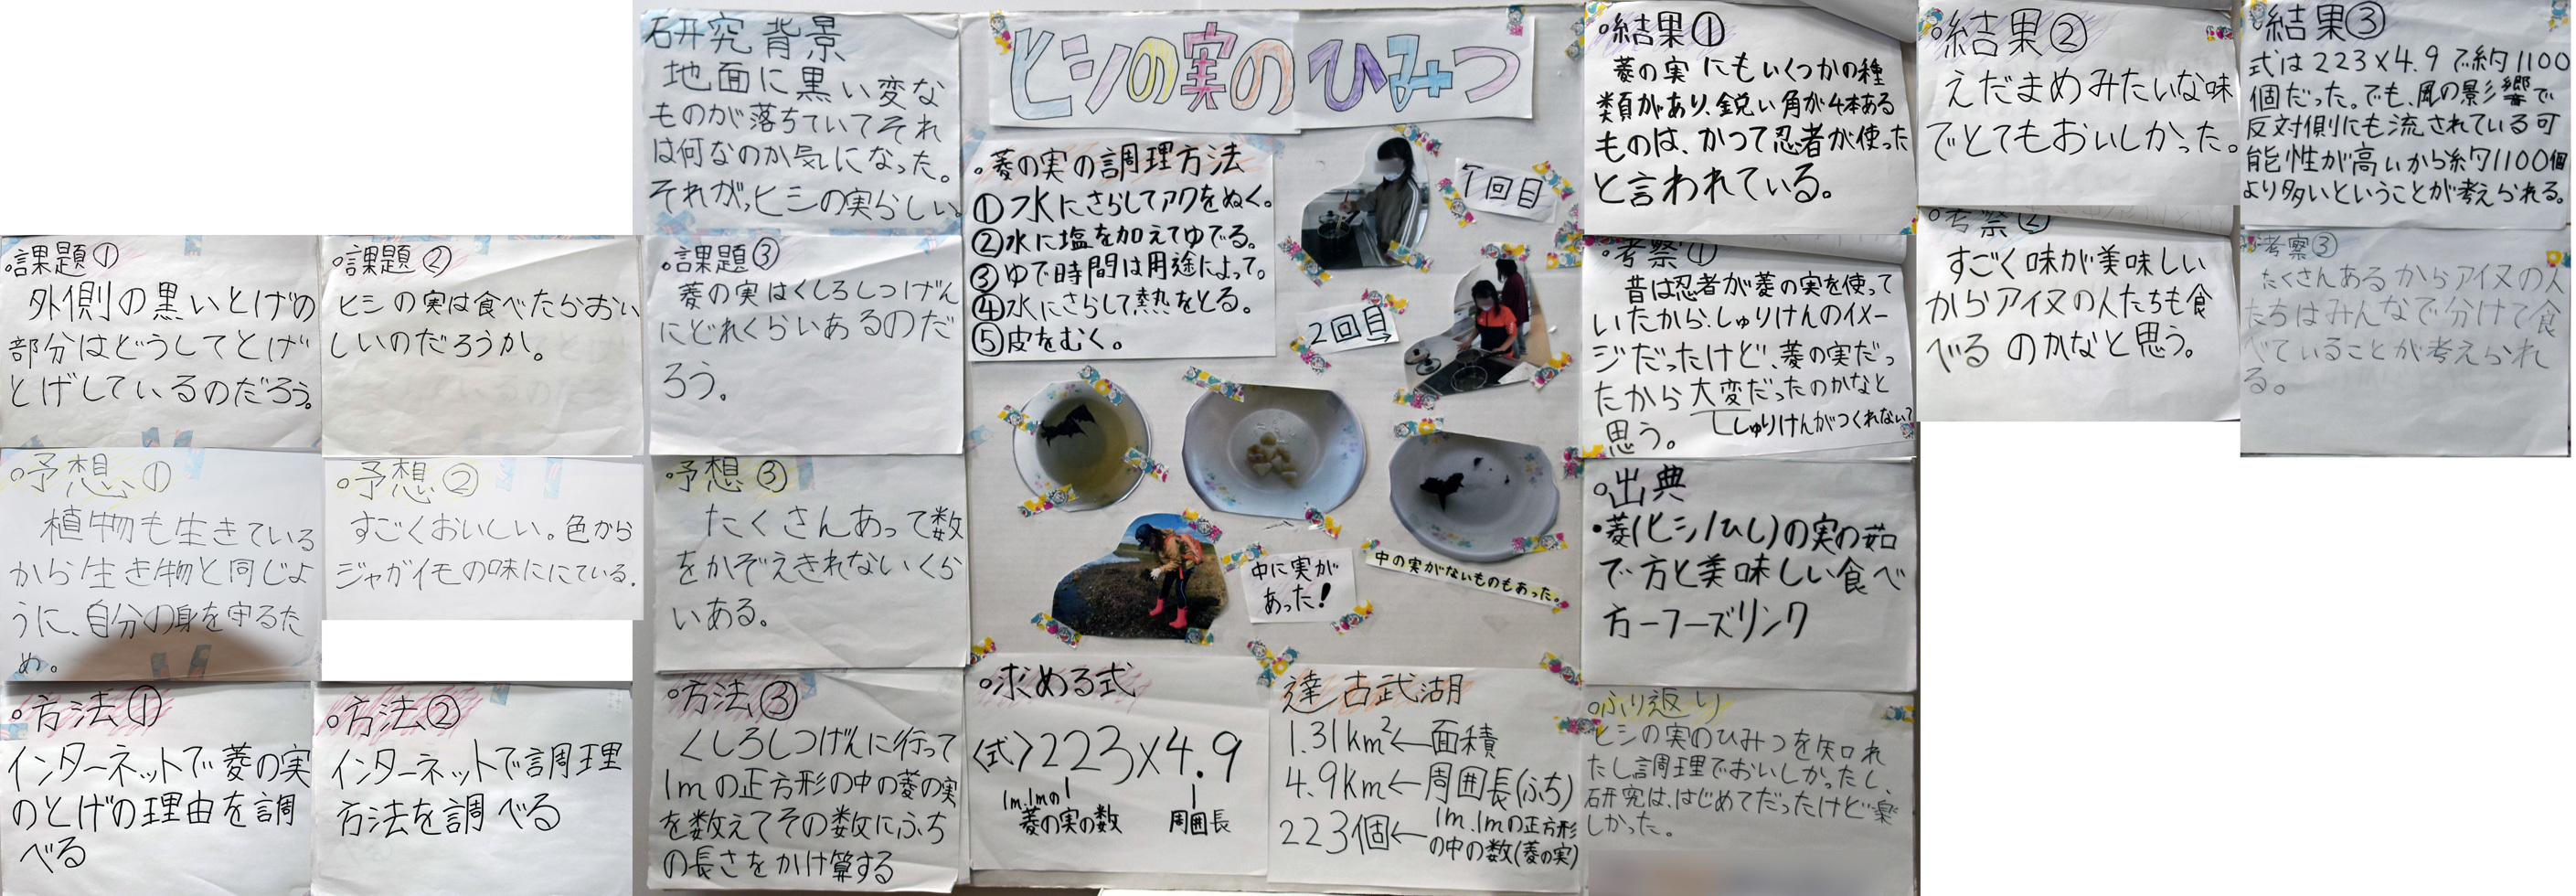 ヒシの実のひみつ
研究背景
地面に黒い変な
ものが落ちていてそれ
は何なのか気になった。
それが、ヒシの実らしい。
・課題①
外側の黒いとげの
部分はどうしてとげ
とげしているのだろう。
・課題②
ヒシの実は食べたらおい
しいのだろうか。
・課題③
菱の実はくしろしつげん
にどれくらいあるのだ
ろう。
・予想①
植物も生きている
から生き物と同じよ
うに、自分の身を守るた
め。
・予想②
すごくおいしい。色から
ジャガイモの味ににている。
・予想③
たくさんあって数
をかぞえきれないくら
いある。
・方法①
インターネットで菱の実
のとげの理由を調
べる
・方法②
インターネットで調理
方法を調べる
・方法③
くしろしつげんに行って
1mの正方形の中の菱の実
を数えてその数にふち
の長さをかけ算する
・菱の実の調理方法
①水にさらしてアクをぬく。
②水に塩を加えてゆでる。
③ゆで時間は用途によって。
④水にさらして熱をとる。
⑤皮をむく。
1回目
2回目
中に実が
あった!
中の実がないものもあった。
・求める式
〈式〉223×4.9
1m.1mの
菱の実の数
周囲長
達古武湖
1.31km²←面積
4.9km←周囲長(ふち)
223個←1m.1mの正方形
の中の数(菱の実)
・結果①
菱の実にもいくつかの種
類があり、鋭い角が4本ある
ものは、かつて忍者が使った
と言われている。
・考察①
昔は忍者が菱の実を使って
いたから、しゅりけんのイメー
ジだったけど、菱の実だっ
たから大変だったのかなと
しゅりけんがつくれない?
思う。
・結果②
えだまめみたいな味
でとてもおいしかった。
・考察②
すごく味が美味しい
からアイヌの人たちも食
べるのかなと思う。
・結果③
式は223×4.9で約1100
個だった。でも、風の影響で
反対側にも流されている可
能性が高いから約1100個
より多いということが考えられる。
・考察③
たくさんあるからアイヌの人
たちはみんなで分けて食
べていることが考えられ
る。
・出典
・菱(ヒシ/ひし)の実の茹
で方と美味しい食べ
方ーフーズリンク
・ふり返り
ヒシの実のひみつを知れ
たし調理でおいしかったし、
研究は、はじめてだったけど楽
しかった。